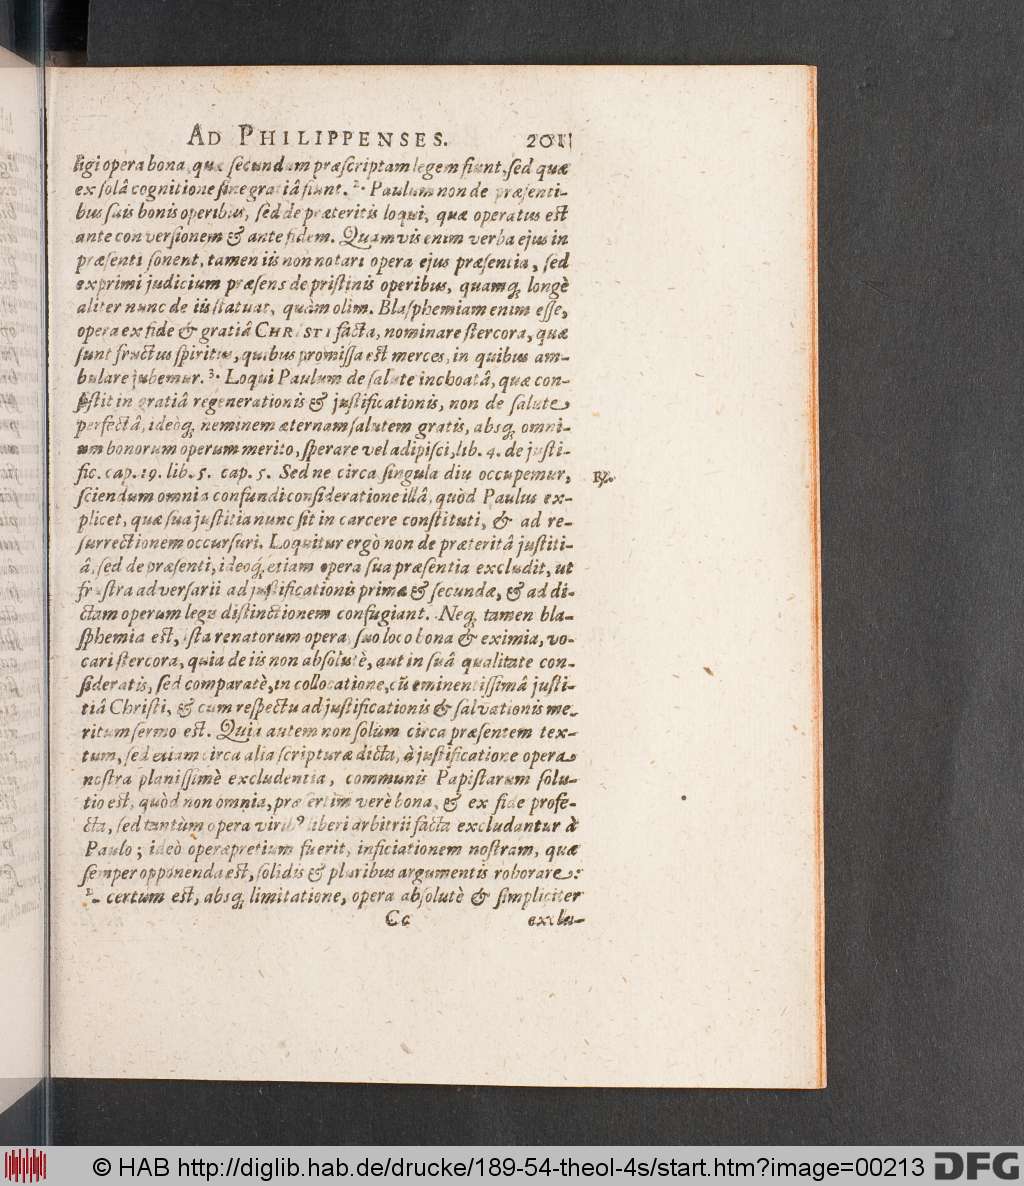 AD PHILIPPENSES. 201
ligi opera bona, quæ secundum præscriptam legem fiunt, sed quæ
ex solâ cognitione sine gratiâ fiunt. 2. Paulum non de præsenti-
bus suis bonis operibus, sed de præteritis loqui, quæ operatus est
ante conversionem & ante fidem. Quamvis enim verba ejus in
præsenti sonent, tamen iis non notari opera ejus præsentia, sed
exprimi judicium præsens de pristinis operibus, quamq; longè
aliter nunc de iis statuat, quàm olim. Blasphemiam enim esse,
opera ex fide & gratiâ CHRISTI facta, nominare stercora, quæ
sunt fructus spiritus, quibus promissa est merces, in quibus am-
bulare jubemur. 3. Loqui Paulum de salute inchoatâ, quæ con-
sistit in gratiâ regenerationis & justificationis, non de salute
perfectâ, ideòq; neminem æternam salutem gratis, absq; omni-
um bonorum operum merito, sperare vel adipisci, lib. 4. de justi-
fic. cap. 19. lib. 5. cap. 5. Sed ne circa singula diu occupemur,
℞.
sciendum omnia confundi consideratione illâ, quòd Paulus ex-
plicet, quæ sua justitia nunc sit in carcere constituti, & ad re-
surrectionem occursuri. Loquitur ergò non de præteritâ justiti-
â, sed de præsenti, ideoq; etiam opera sua præsentia excludit, ut
frustra adversarii ad justificationis primæ & secundæ, & ad di-
ctam operum lege distinctionem confugiant. Neq; tamen bla-
sphemia est, ista renatorum opera, suo loco bona & eximia, vo-
cari stercora, quia de iis non absolutè, aut in suâ qualitate con-
sideratis, sed comparatè, in collocatione, cũ eminentissimâ justi-
tiâ Christi, & cum respectu ad justificationis & salvationis me-
ritum sermo est. Quia autem non solùm circa præsentem tex-
tum, sed etiam circa alia scripturæ dicta, à justificatione opera
nostra planissimè excludentia, communis Papistarum solu-
tio est, quòd non omnia, præsertim verè bona, & ex fide profe-
cta, sed tantùm opera viribꝰ liberi arbitrii facta excludantur à
Paulo; ideò operæpretium fuerit, inficiationem nostram, quæ
semper opponenda est, solidis & pluribus argumentis roborare:
1. certum est, absq; limitatione, opera absolutè & simpliciter
Cc exclu-
© HAB http://diglib.hab.de/drucke/189-54-theol-4s/start.htm?image=00213 DFG